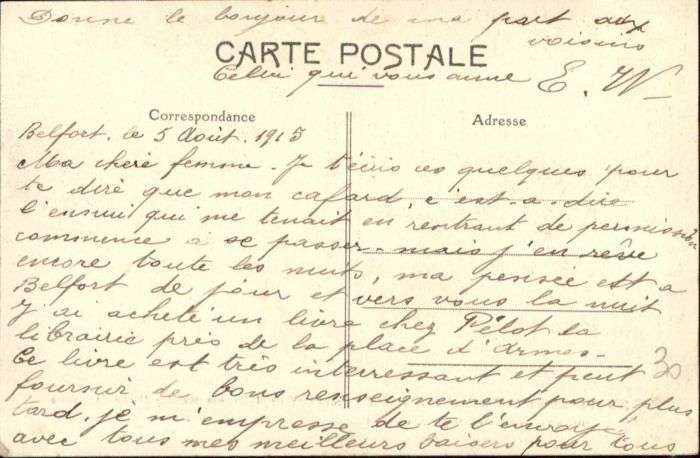 Donne le bonjour de ma part aux
voisins
CARTE POSTALE
Celui qui vous aime E. W
Correspondance
Adresse
Belfort. le 5 Août. 1915
Ma chère femme. Je t'écris ces quelques pour
te dire que mon cafard, c'est. a. dire
l'ennui qui me tenait en rentrant de permission
commence à se passer. mais j'en rêve
encore toute les nuits, ma pensée est a
Belfort de jour et vers vous la nuit
J'ai acheté un livre chez Pélot la
librairie près de la place d'Armes.
Ce livre est très interressant et peut
30
fournir de bons renseignement pour plus
tard. je m'empresse de te l'envoyé,
avec tous mes meilleurs baisers pour tous